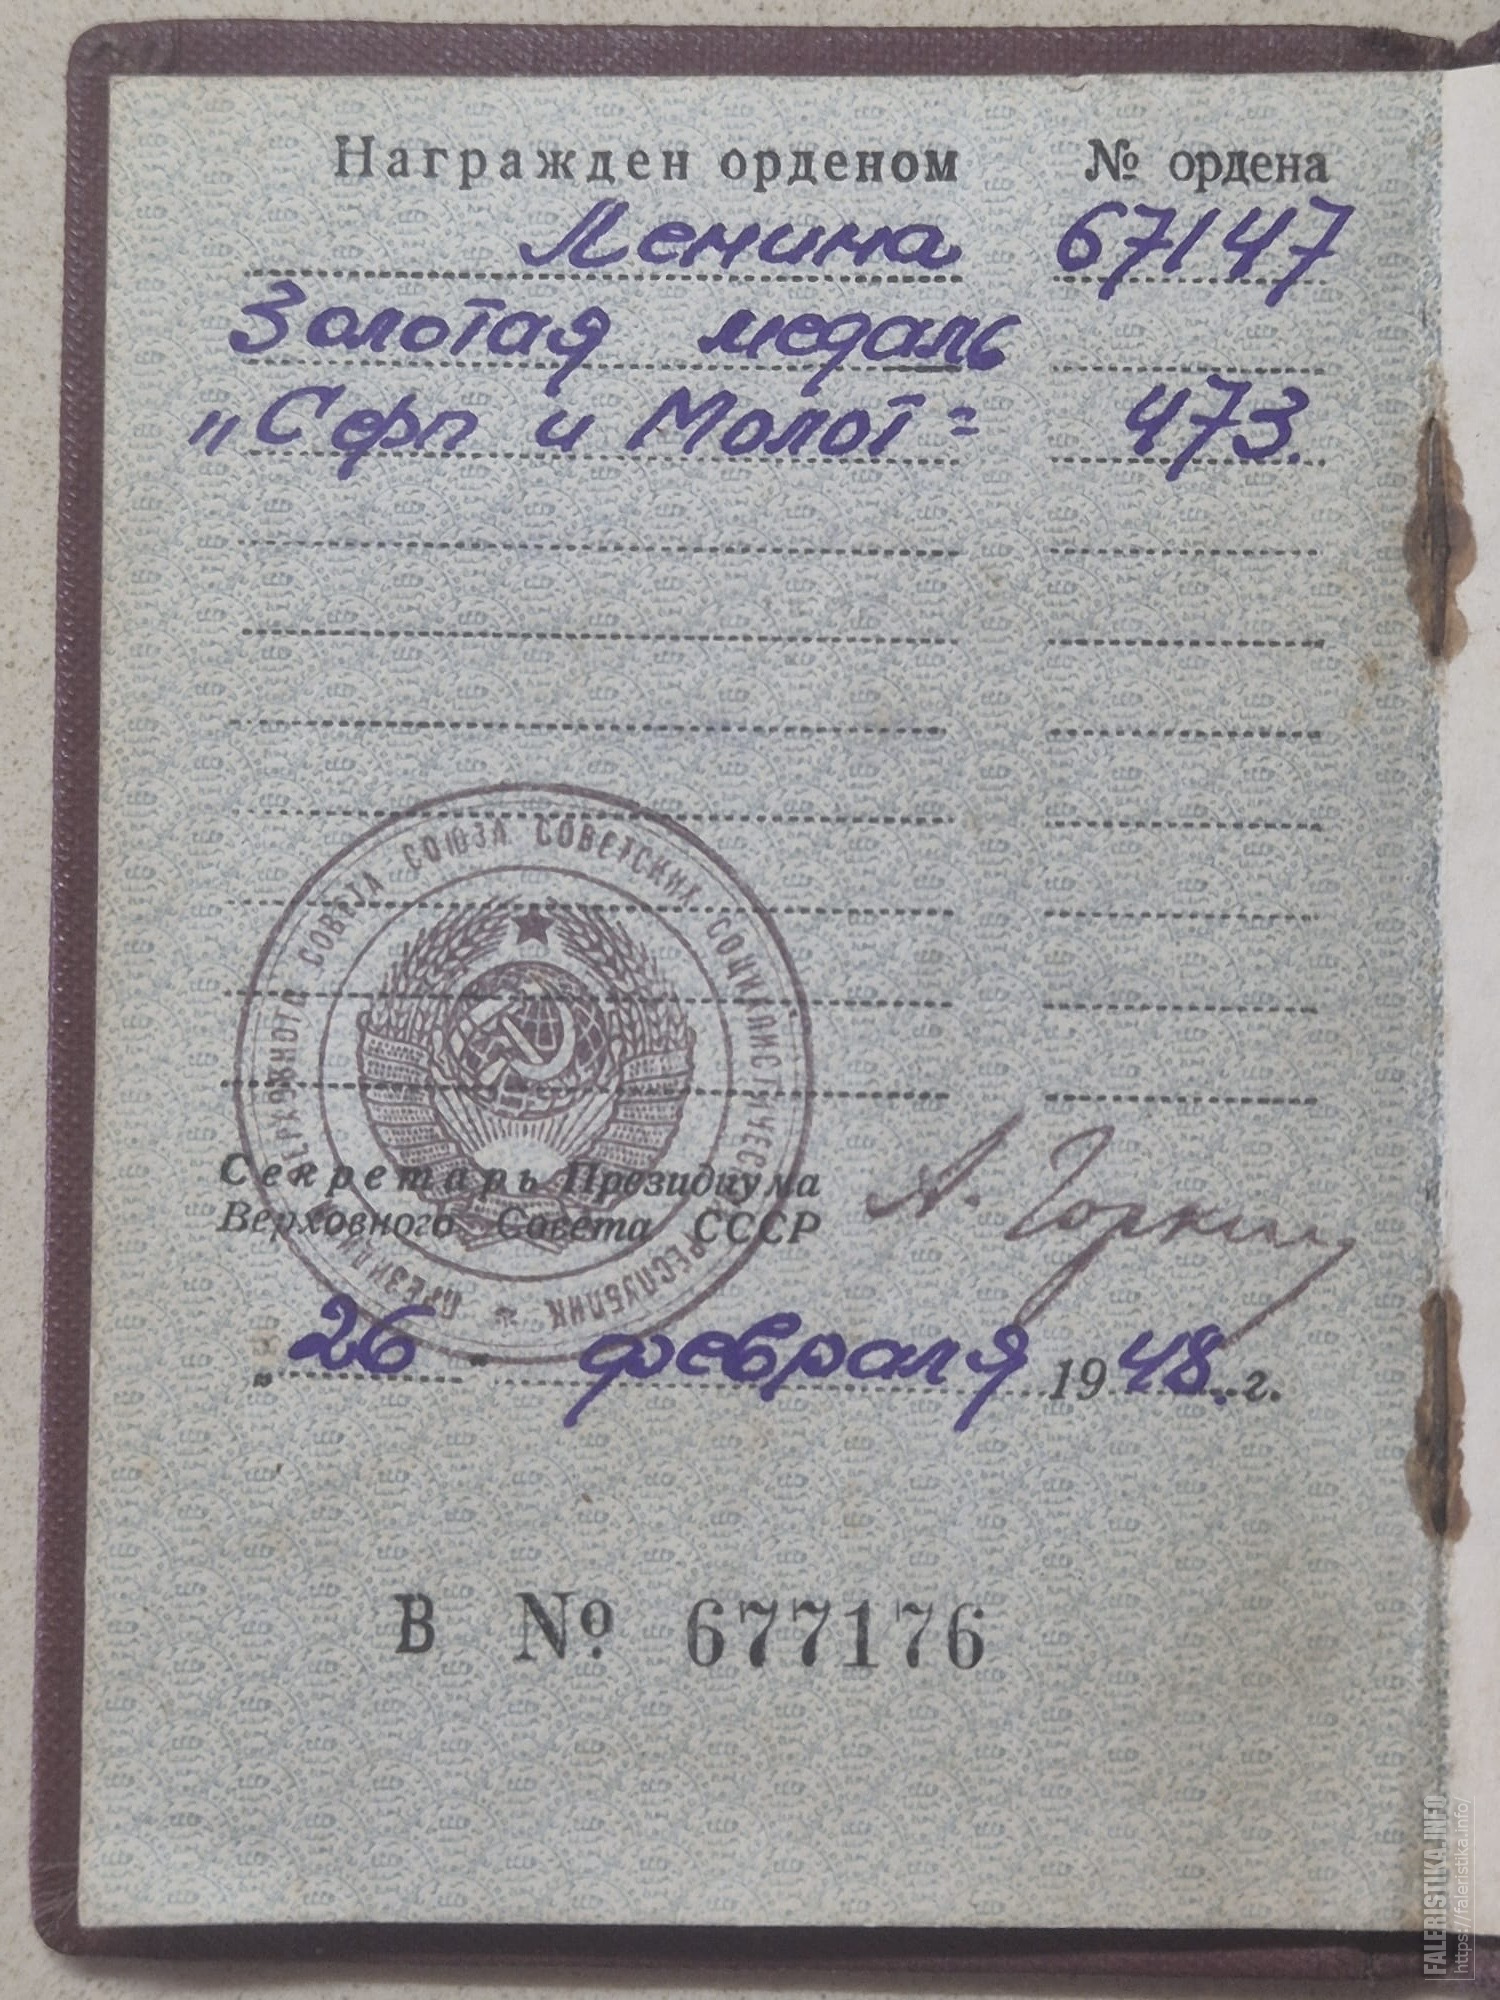 Награжден орденом № ордена
Ленина 67147
Золотая медаль
„Серп и Молот" 473.
ПРЕЗИДИУМ ВЕРХОВНОГО СОВЕТА СОЮЗА СОВЕТСКИХ СОЦИАЛИСТИЧЕСКИХ РЕСПУБЛИК
Секретарь Президиума
Верховного Совета СССР
А. Горкин
„26" февраля 1948. г.
В № 677176
FALERISTIKA.INFO
https://faleristika.info/